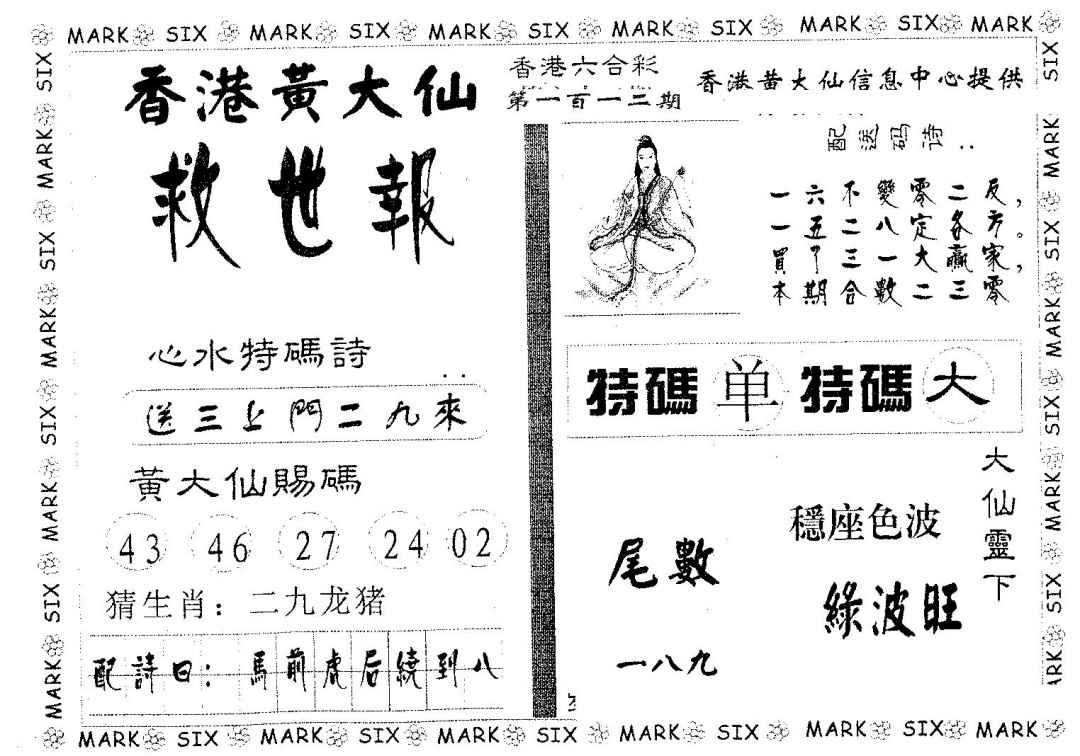 MARK SIX MARK SIX MARK SIX MARK SIX MARK SIX MARK
香港黃大仙
救世報
香港六合彩
第一百一十二期
香港黄大仙信息中心提供
配送码诗:
一六不變零二反，
一五二八定各方。
買了三一大贏家，
本期合數二三零
心水特碼詩:
送三上門二九來
特碼 单 特碼 大
黃大仙賜碼
43 46 27 24 02
猜生肖：二九龙猪
配詩曰：馬前虎后繞到八
尾數
一八九
穩座色波
綠波旺
大仙靈下
MARK SIX MARK SIX MARK SIX MARK SIX MARK SIX MARK
SIX MARK SIX MARK SIX MARK SIX MARK
SIX MARK SIX MARK SIX MARK SIX ARK